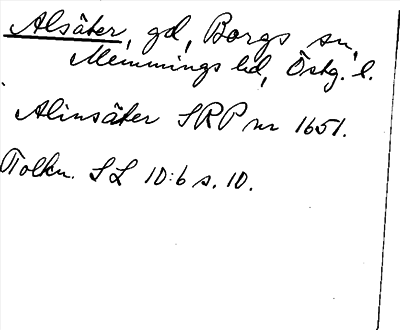 Alsäter, gd, Borgs sn,
Memmings hd, Östg. l.
Alinsäter SRP nr 1651.
Tolkn. SL 10:6 s. 10.